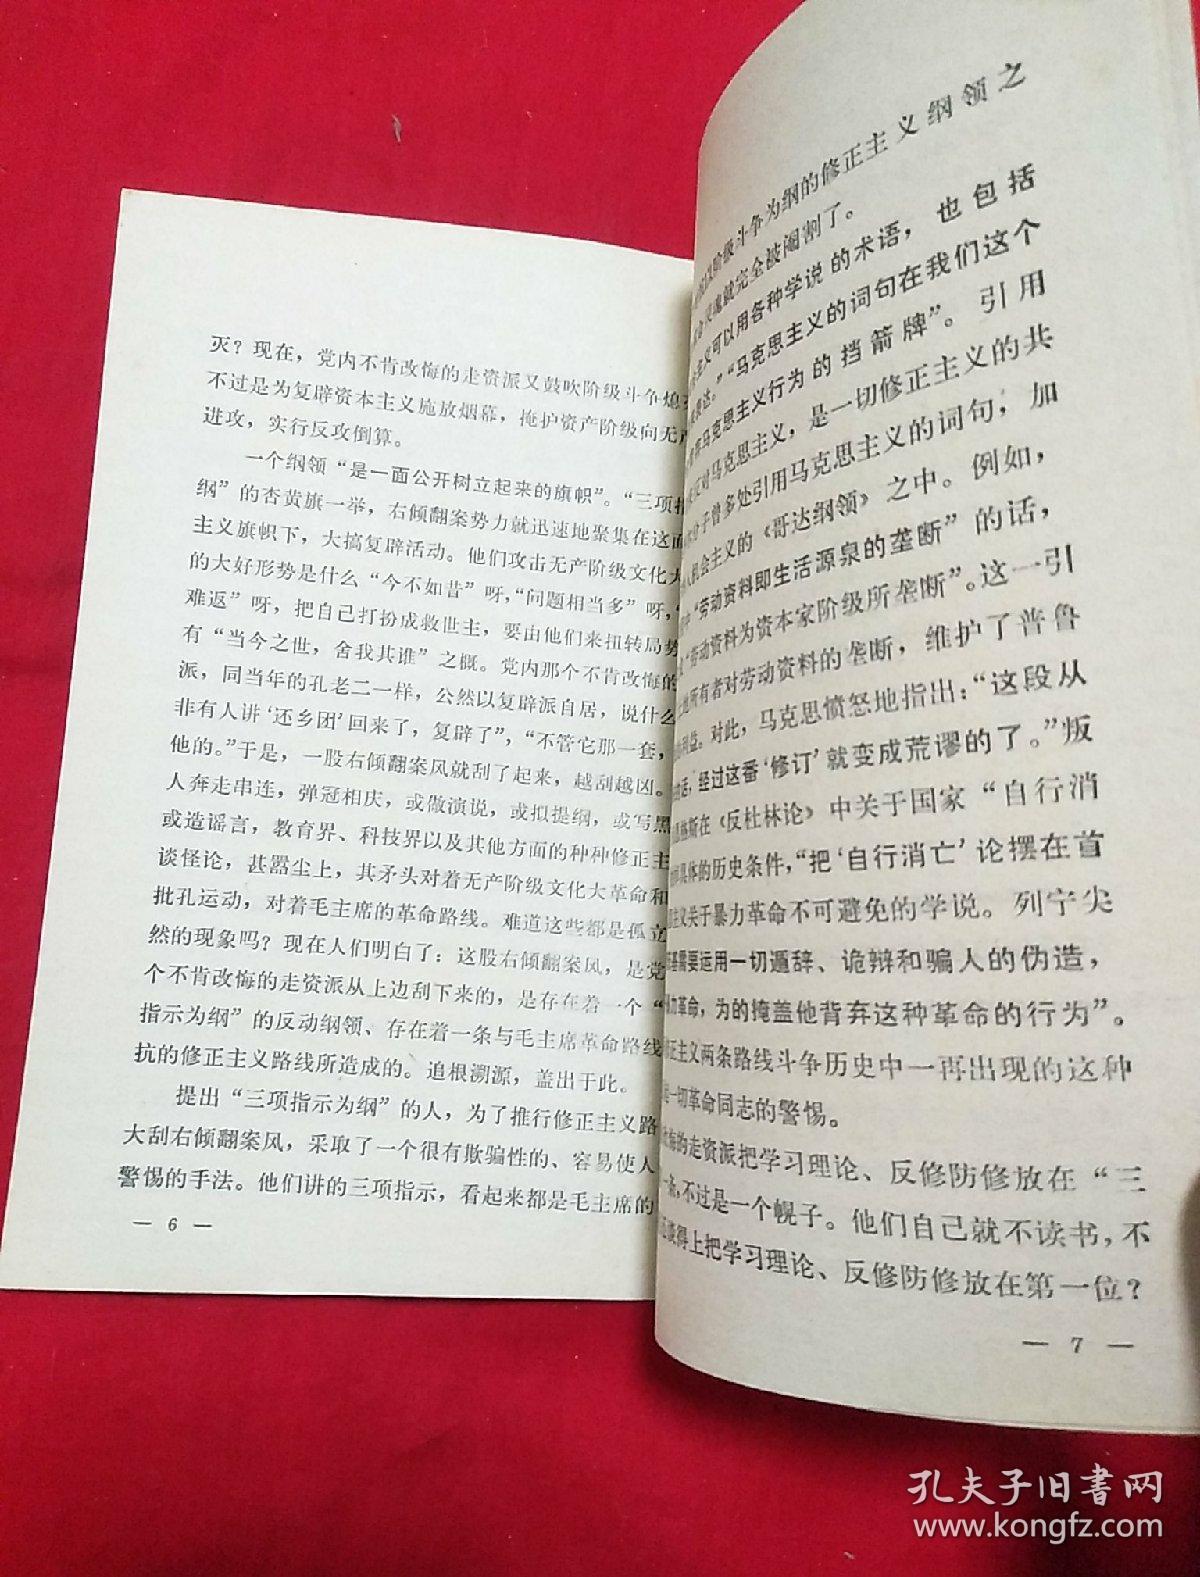 灭？现在，党内不肯改悔的走资派又鼓吹阶级斗争熄
不过是为复辟资本主义施放烟幕，掩护资产阶级向无产
进攻，实行反攻倒算。
一个纲领“是一面公开树立起来的旗帜”。“三项指
纲”的杏黄旗一举，右倾翻案势力就迅速地聚集在这面
主义旗帜下，大搞复辟活动。他们攻击无产阶级文化大
的大好形势是什么“今不如昔”呀，“问题相当多”呀，“
难返”呀，把自己打扮成救世主，要由他们来扭转局势
有“当今之世，舍我其谁”之概。党内那个不肯改悔的
派，同当年的孔老二一样，公然以复辟派自居，说什么
非有人讲‘还乡团’回来了，复辟了”，“不管它那一套，
他的。”于是，一股右倾翻案风就刮了起来，越刮越凶。
人奔走串连，弹冠相庆，或做演说，或拟提纲，或写黑
或造谣言，教育界、科技界以及其他方面的种种修正主
谈怪论，甚嚣尘上，其矛头对着无产阶级文化大革命和
批孔运动，对着毛主席的革命路线。难道这些都是孤立
然的现象吗？现在人们明白了：这股右倾翻案风，是党
个不肯改悔的走资派从上边刮下来的，是存在着一个“
指示为纲”的反动纲领、存在着一条与毛主席革命路线
抗的修正主义路线所造成的。追根溯源，盖出于此。
提出“三项指示为纲”的人，为了推行修正主义路
大刮右倾翻案风，采取了一个很有欺骗性的、容易使人
警惕的手法。他们讲的三项指示，看起来都是毛主席的
— 6 —
以阶级斗争为纲的修正主义纲领之
灵魂就完全被阉割了。
主义可以用各种学说的术语，也包括
表达。”“马克思主义的词句在我们这个
马克思主义行为的挡箭牌”。引用
反对马克思主义，是一切修正主义的共
分子曾多处引用马克思主义的词句，加
机会主义的《哥达纲领》之中。例如，
中“劳动资料即生活源泉的垄断”的话，
“劳动资料为资本家阶级所垄断”。这一引
地所有者对劳动资料的垄断，维护了普鲁
利益。对此，马克思愤怒地指出：“这段从
话，经过这番‘修订’就变成荒谬的了。”叛
恩格斯在《反杜林论》中关于国家“自行消
具体的历史条件，“把‘自行消亡’论摆在首
主义关于暴力革命不可避免的学说。列宁尖
基需要运用一切遁辞、诡辩和骗人的伪造，
力革命，为的掩盖他背弃这种革命的行为”。
正主义两条路线斗争历史中一再出现的这种
起一切革命同志的警惕。
悔的走资派把学习理论、反修防修放在“三
一条，不过是一个幌子。他们自己就不读书，不
谈得上把学习理论、反修防修放在第一位？
— 7 —
孔夫子旧书网
www.kongfz.com